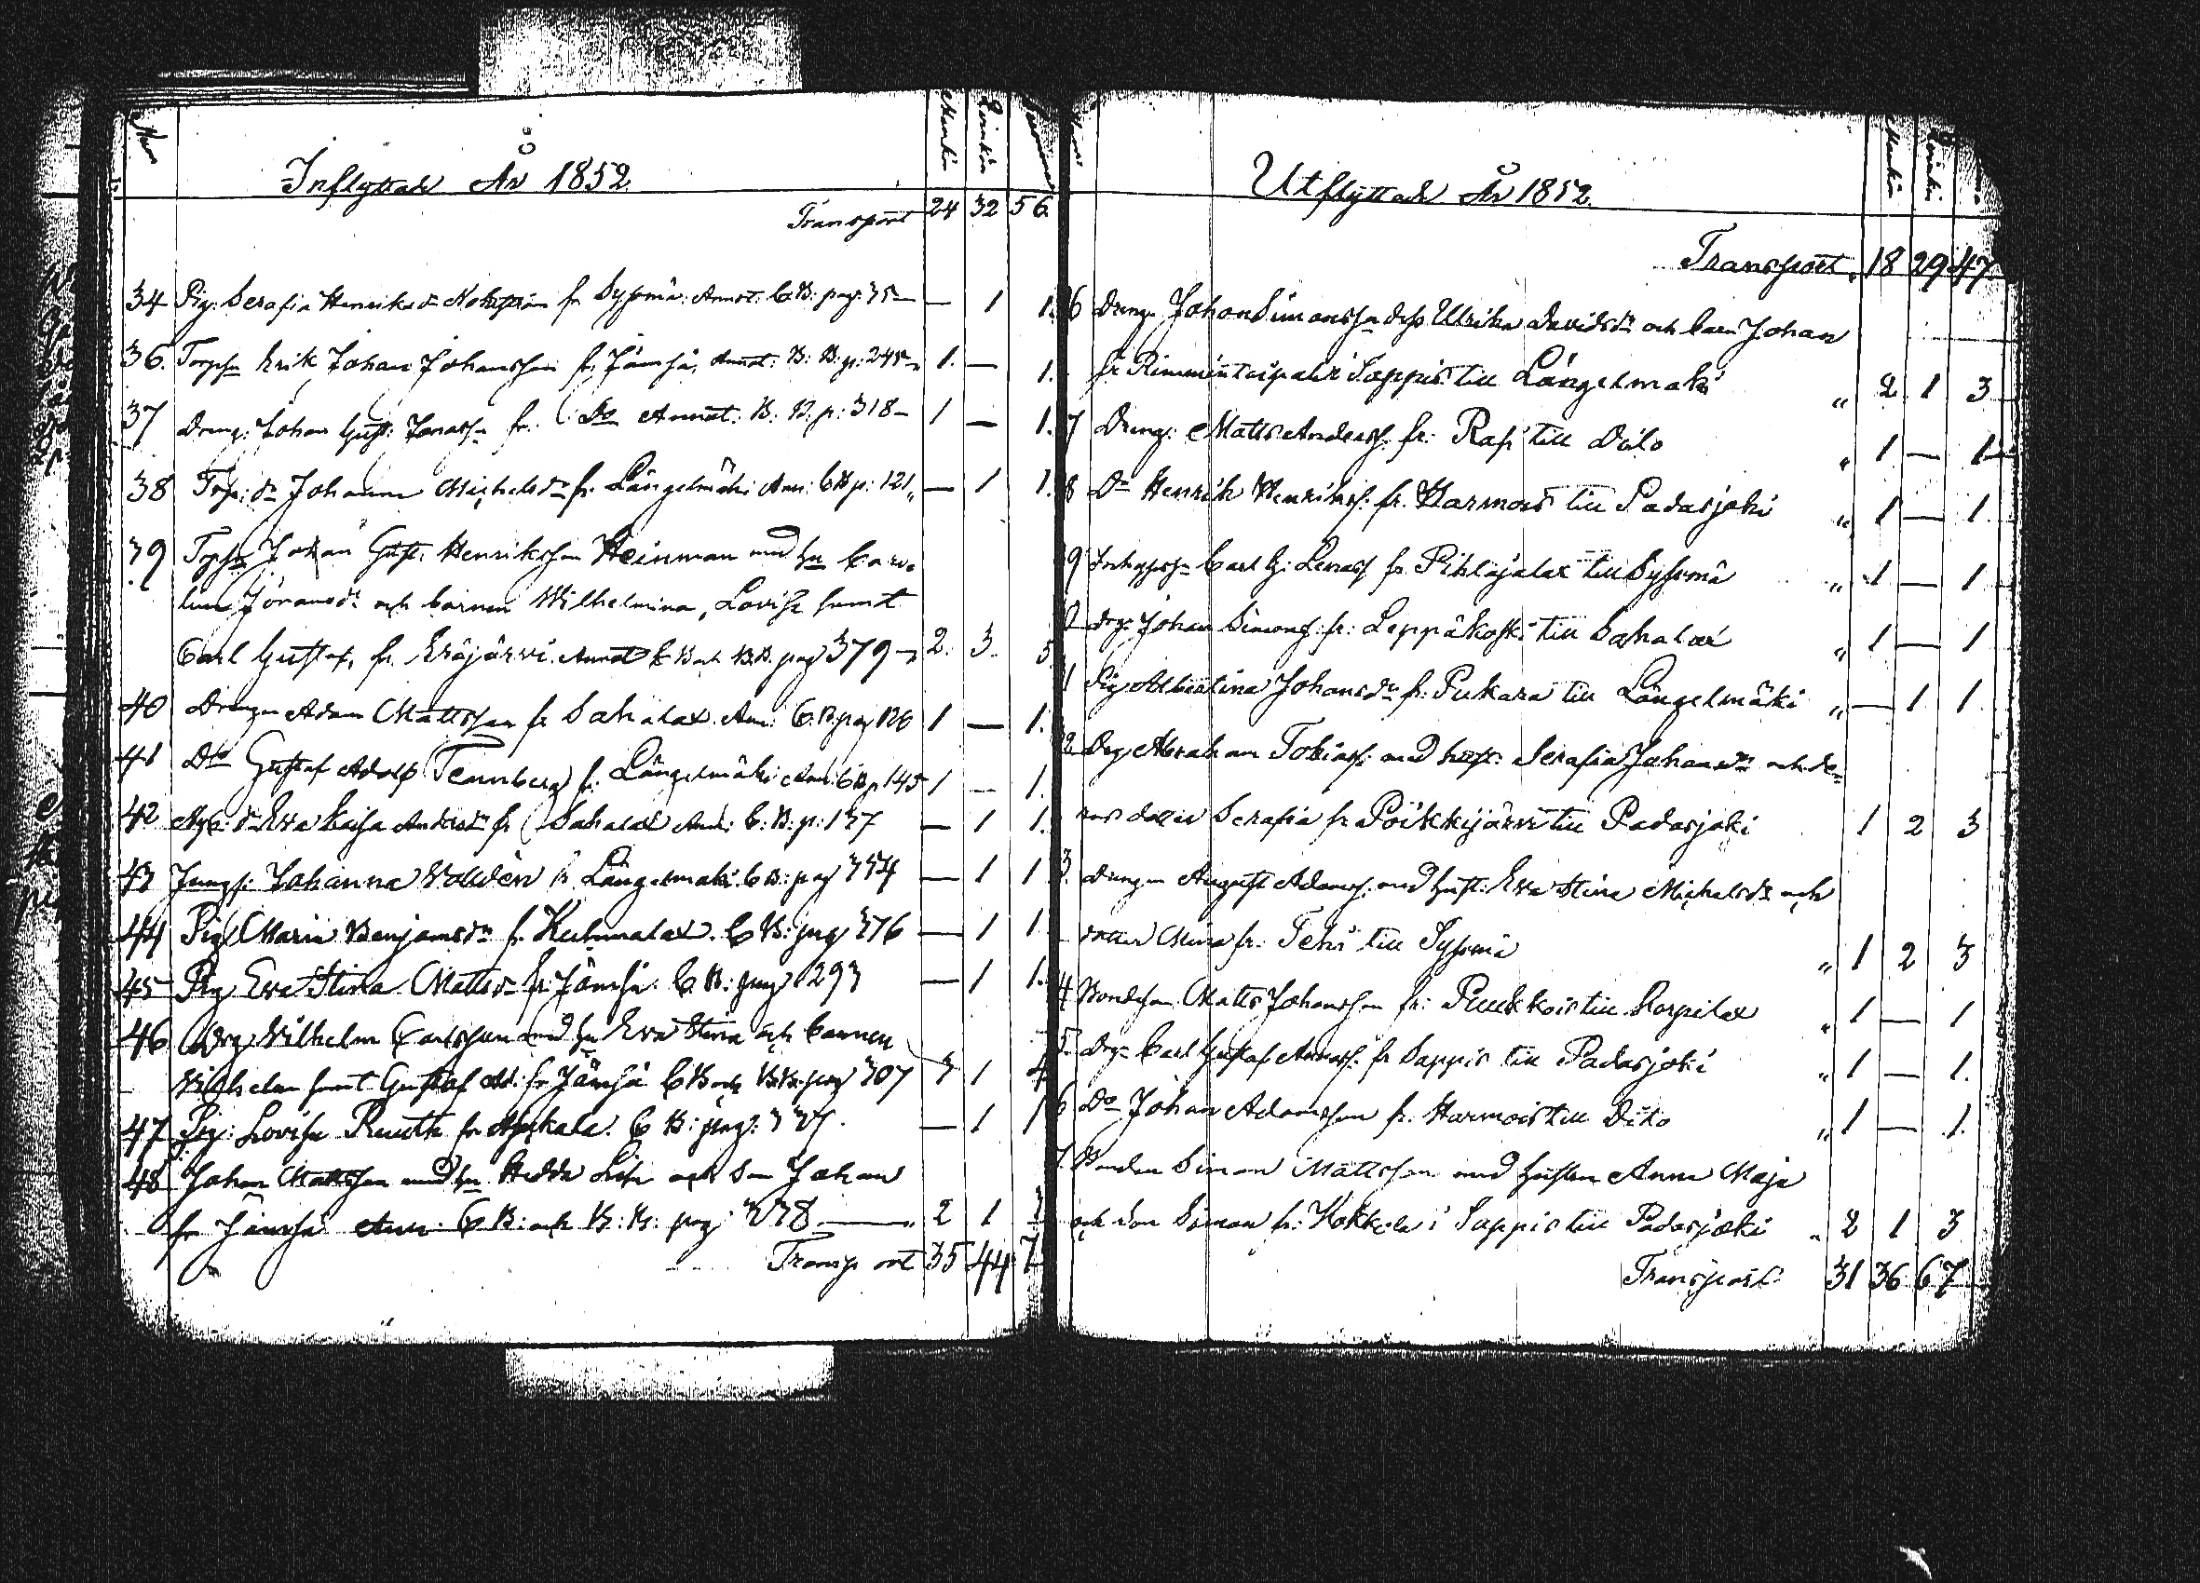 Nro Mankön Qvinkön
Inflyttade År 1852
Transport 24 32 56.
34 Pig. Serafia Henriksdr fr Syssmä: Annot: C.B: pag. 75 — — 1 1.
36. Torpsn Erik Johan Johansson fr. Jämsä, Annot: B: B. p: 245 1. — 1.
37 Dreng: Johan Gust: Jonass. fr. Do Annot: B. B. p: 318 — 1 — 1.
38 Torp: dr Johanna Michelsdr fr. Längelmäki Ann: CB p: 121 — 1 1.
39 Torpsn Johan Gust. Henriksson Heinman med hu Caro-
lina Jöransdr och barnen Wilhelmina, Lovisa samt
Carl Gustaf, fr. Eräjärvi. Annot C B och B.B. pag 379 — 2. 3. 5
40 Drengen Adam Mattsson fr Sahalax. Ann: C. B pag 126 1 — 1.
41 Dto Gustaf Adolf Tennberg fr. Längelmäki Ann: C B p 145 1 — 1.
42 Eva Caisa Andersdr fr Sahalax Ann: C: B: p: 137 — 1 1.
43 Jungf: Johanna fr. Längelmäki C B: pag 334 — 1 1
44 Pig Maria Benjamsdr fr. Kuhmalax. C B: pag 376 — 1 1
45 Pig Eva Stina Mattsdr fr. Jämsä. C. B: pag 293 — 1 1.
46 Drg Wilhelm Carlsson med hu Eva Stina och barnen
Wilhelm samt Gustaf Ad: fr Jämsä C B och B.B. pag 307 3 1 4
47 Pig: Lovisa Ruuth fr C B: pag: — 1 1
48 Johan Mattsson med hu Hedda Lisa och son Johan
fr Jämsä Ann: C B: och B: B: pag: 338 — 2 1 3
Transport 35 44 7
Mankön Qvinkön
Utflyttade År 1852.
Transport 18 29 47
6 Dreng Johan Simonsson dess Ulrika Davidsdr och barn Johan
fr i Sappis till Längelmäki " 2 1 3
7 Dreng: Matts Anderss. fr. till Dito " 1 — 1
8 Do Henrik Henrikss. fr. Harmois till Padasjoki " 1 — 1
9 Carl G: fr. Pihlajalax till Syssmä " 1 — 1
0 Drg: Johan Simons: fr: Leppäkoski till Sahalax " 1 — 1
1 Pig Albertina Johansdr fr: Pukara till Längelmäki " — 1 1
2 Drg Abraham Tobiass. med hust: Serafia Johansdr och de-
ras dotter Serafia fr Pöikkijärvi till Padasjoki 1 2 3
3. Drengen August Adamss. med hust: Eva Stina Michelsdr och
dotter Mina fr. Tehi till Syssmä " 1 2 3
4 Bondeson Matts Johansson fr: Puukkois till Korpilax " 1 — 1
5. Drg: Carl Gustaf fr Sappis till Padasjoki " 1 — 1.
6 Do Johan Adamsson fr. Harmois till Dito " 1 — 1.
7. Bonden Simon Mattsson med hustru Anna Maja
och son Simon fr: Kokkola i Sappis till Padasjoki " 2 1 3
Transport 31 36 67